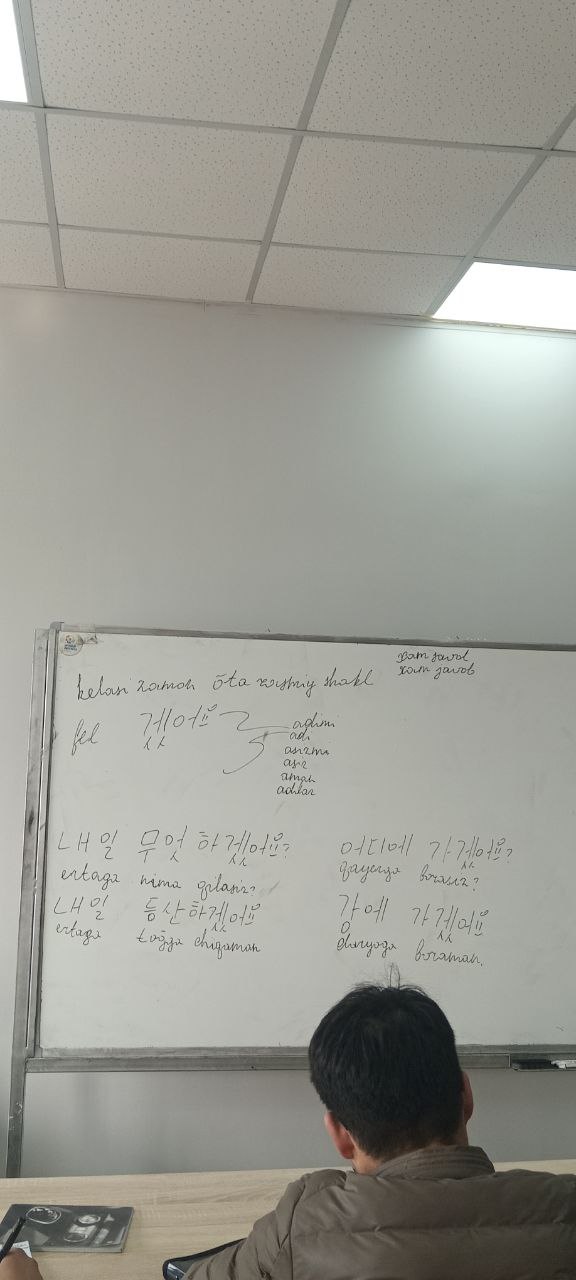 xam savol
xam javob
kelasi zamon õta rasmiy shakl
fel 겠어요
adimi
adi
asizmi
asiz
aman
adilar
내일 무엇 하겠어요?
ertaga nima qilasiz?
내일 등산하겠어요
ertaga toğga chiqaman
어디에 가겠어요?
qayerga borasiz?
강에 가겠어요
daryoga boraman.